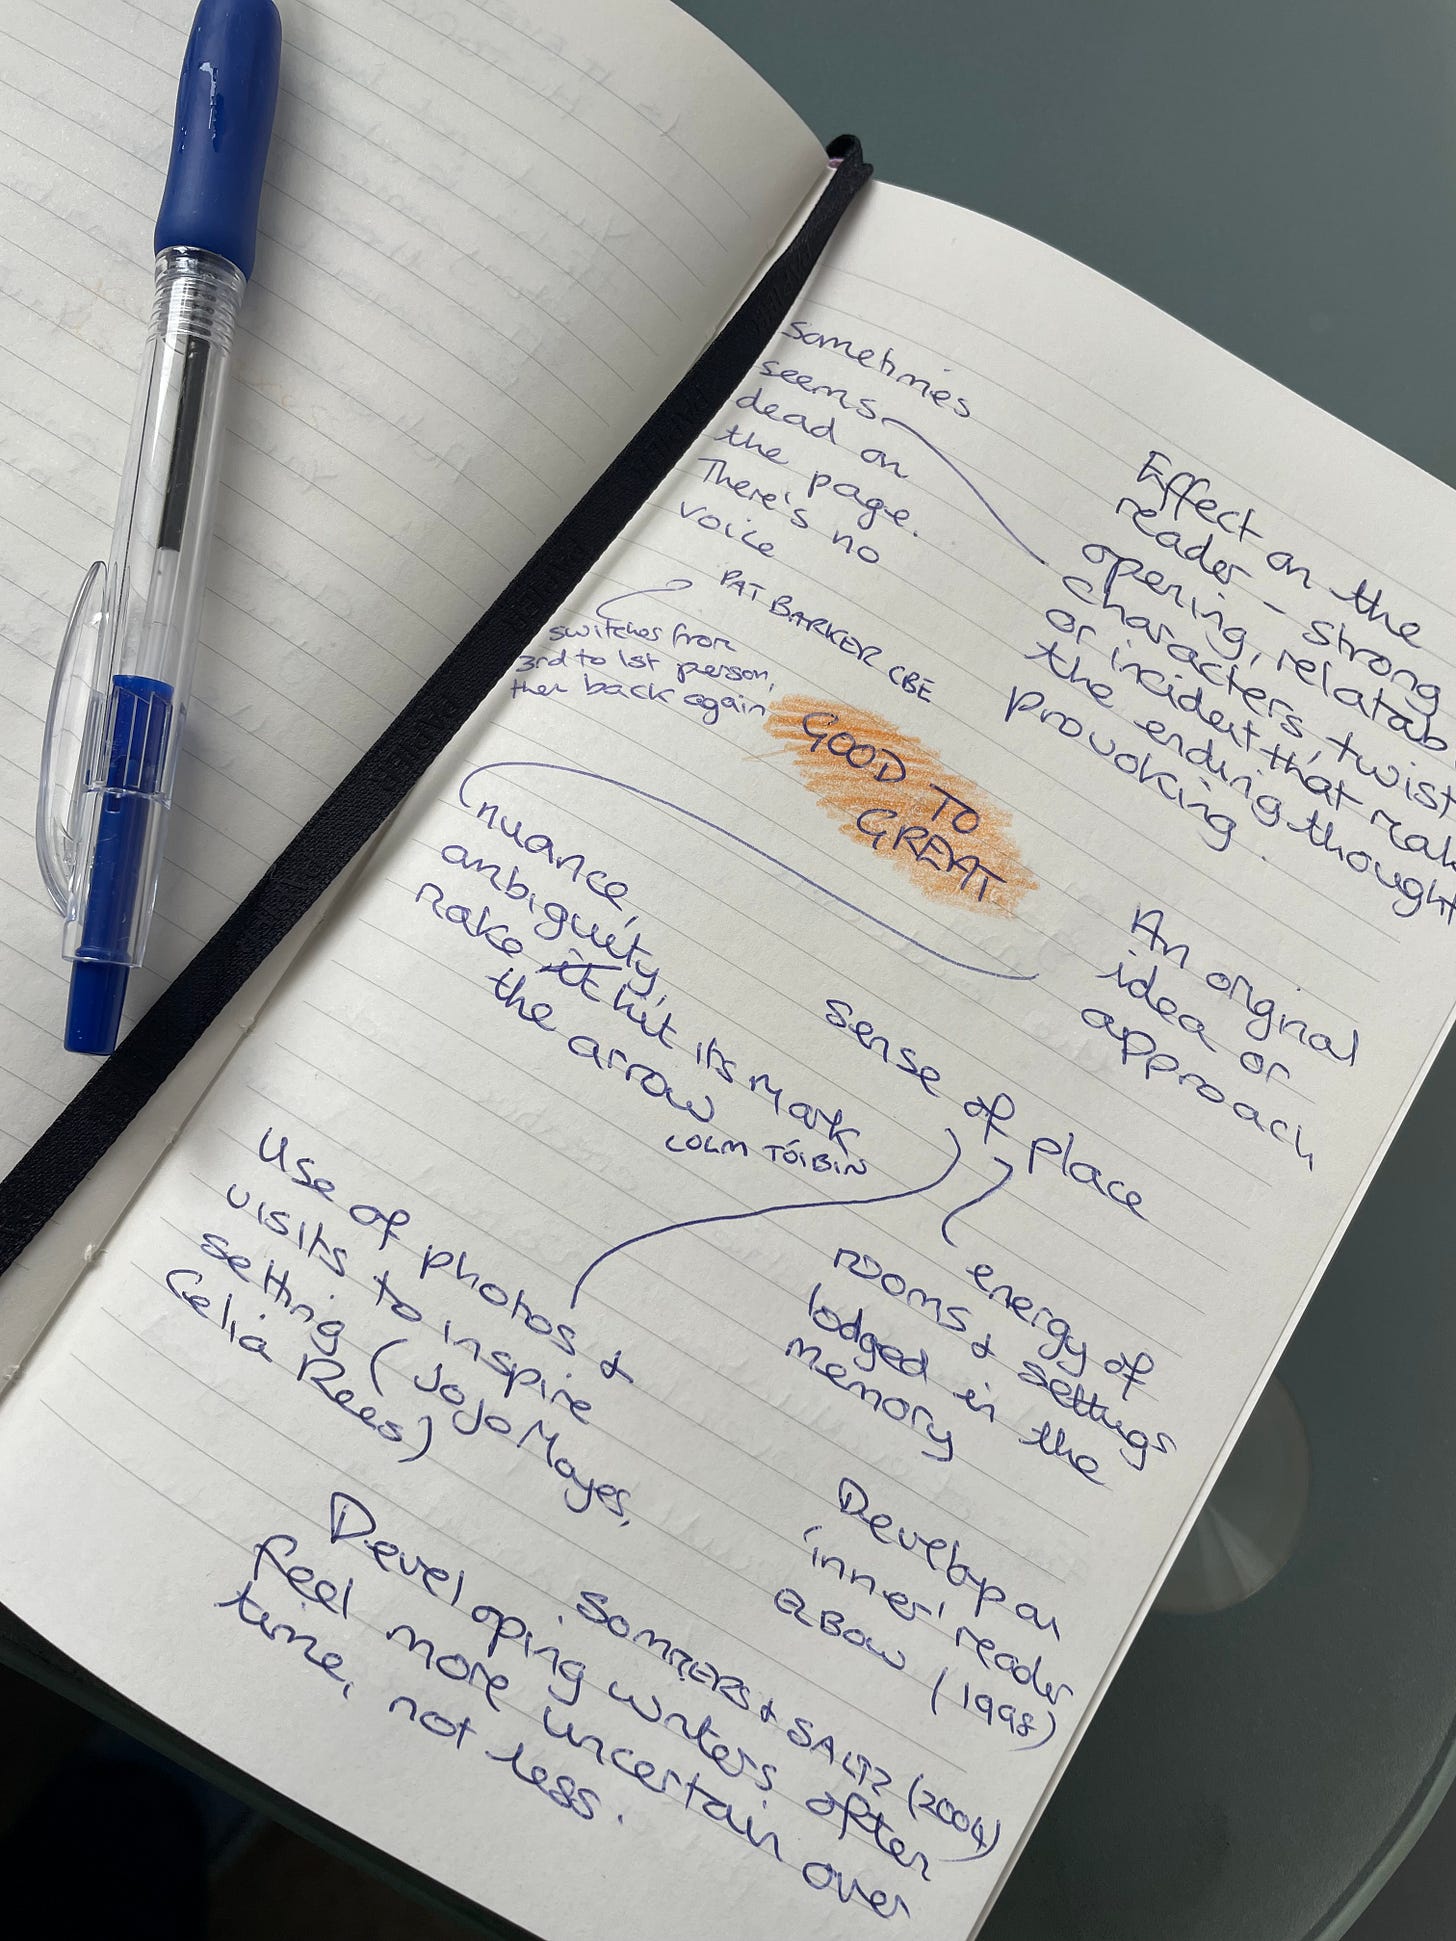 sometimes
seems
dead on
the page.
There's no
voice
PAT BARKER CBE
switches from
3rd to 1st person,
then back again
Effect on the
reader - strong
opening, relatab
characters, twist
or incident that mak
the ending thought
provoking.
GOOD TO
GREAT
nuance,
ambiguity,
make it hit its mark
the arrow
COLM TÓIBÍN
An original
idea or
approach
sense of place
Use of photos &
visits to inspire
setting (JoJo Moyes,
Celia Rees)
energy of
rooms & settings
lodged in the
memory
Develop an
'inner' reader
ELBOW (1998)
SOMMERS & SALTZ (2004)
Developing writers often
feel more uncertain over
time, not less.